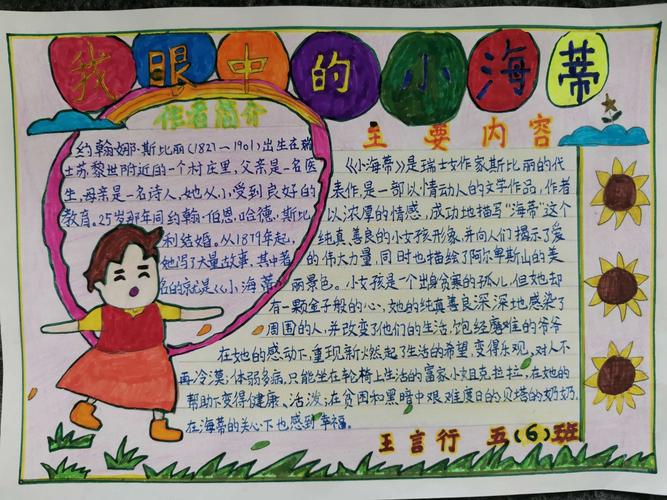 我眼中的小海蒂
作者简介
约翰娜·斯比丽(1827~1901)出生在瑞
士苏黎世附近的一个村庄里,父亲是一名医
生,母亲是一名诗人,她从小受到良好的
教育。25岁那年同约翰·伯恩·哈德·斯比
利结婚。从1879年起,
她写了大量故事,其中著
名的就是《小海蒂》
主要内容
《小海蒂》是瑞士女作家斯比丽的代
表作,是一部以情动人的文学作品,作者
以浓厚的情感,成功地描写"海蒂"这个
纯真善良的小女孩形象,并向人们揭示了爱
的伟大力量,同时也描绘了阿尔卑斯山的美
丽景色。小女孩是一个出身贫寒的孤儿,但她却
有一颗金子般的心,她的纯真善良深深地感染了
周围的人,并改变了他们的生活,饱经磨难的爷爷
在她的感动下,重现新燃起了生活的希望,变得乐观,对人不
再冷漠;体弱多病,只能坐在轮椅上生活的富家小姐克拉拉,在她的
帮助下变得健康、活泼;在贫困和黑暗中艰难度日的贝塔的奶奶,
在海蒂的关心下也感到幸福。
王言行 五(6)班